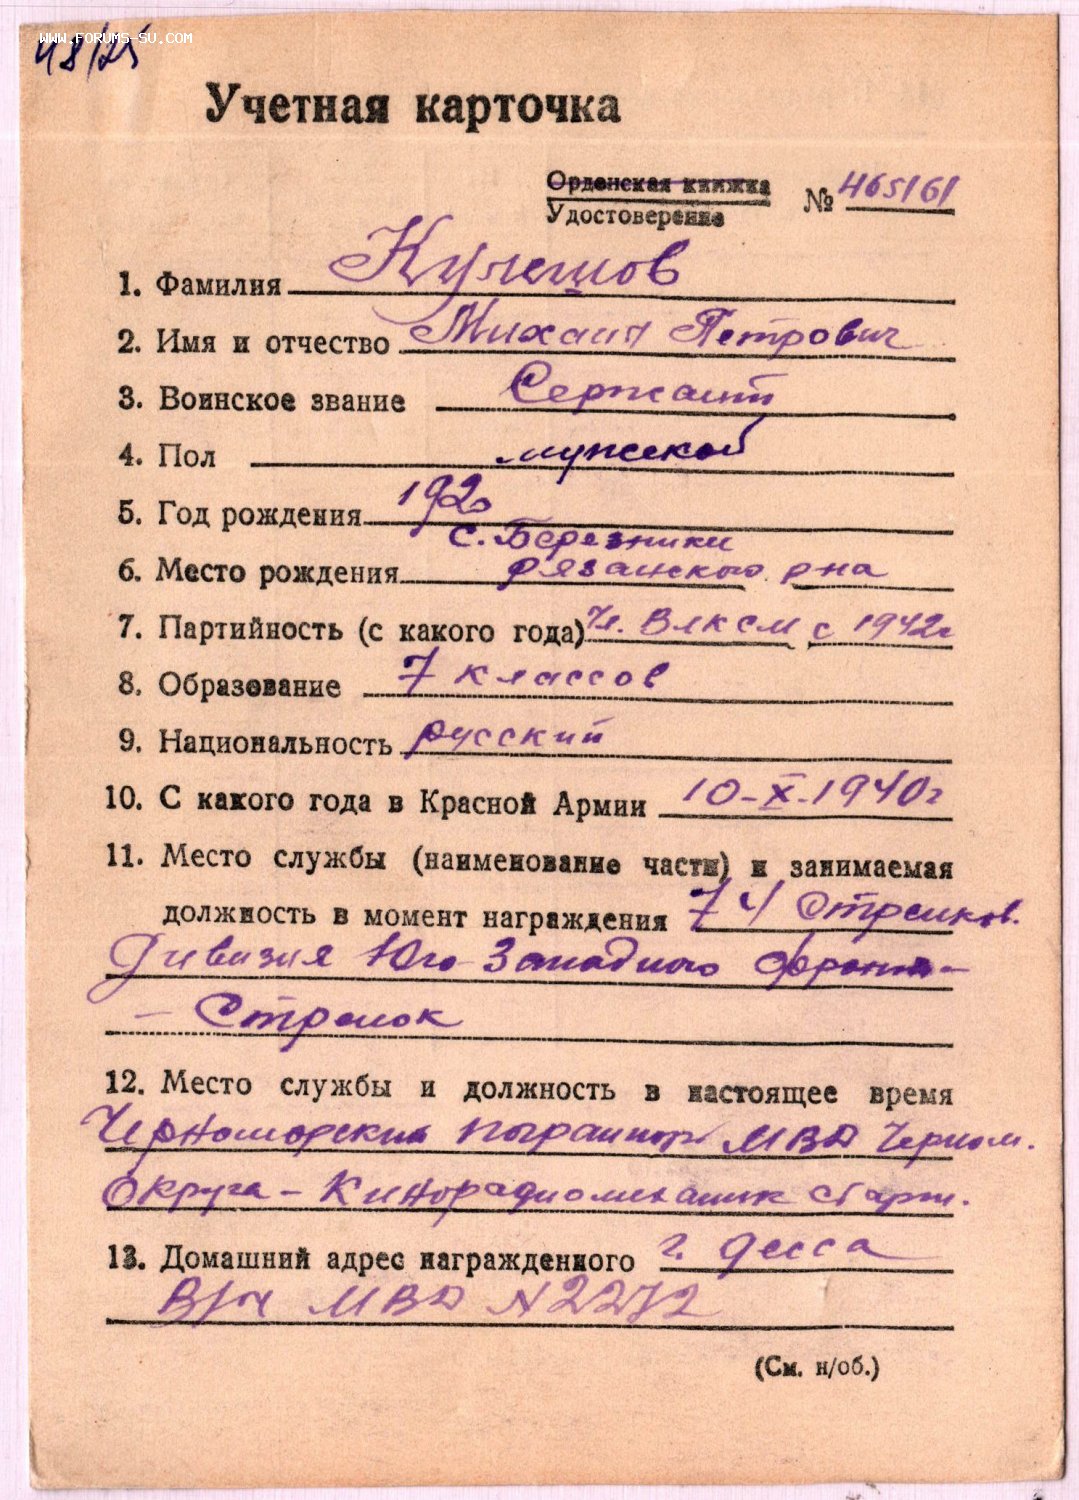 WWW.FORUMS-SU.COM
48/25
Учетная карточка
Орденская книжка
Удостоверение
№ 465161
1. Фамилия Кулешов
2. Имя и отчество Михаил Петрович
3. Воинское звание Сержант
4. Пол мужской
5. Год рождения 1920
с. Березники
6. Место рождения Рязанского р-на
7. Партийность (с какого года) Чл. ВЛКСМ с 1942г
8. Образование 7 классов
9. Национальность русский
10. С какого года в Красной Армии 10-X-1940г
11. Место службы (наименование части) и занимаемая
должность в момент награждения 74 Стрелков.
Дивизия Юго-Западного фронта-
- Стрелок
12. Место службы и должность в настоящее время
Черноморский МВД Черном.
Округа - Кинорадиомеханик
13. Домашний адрес награжденного г. Одесса
В/ч МВД N 2272
(См. н/об.)